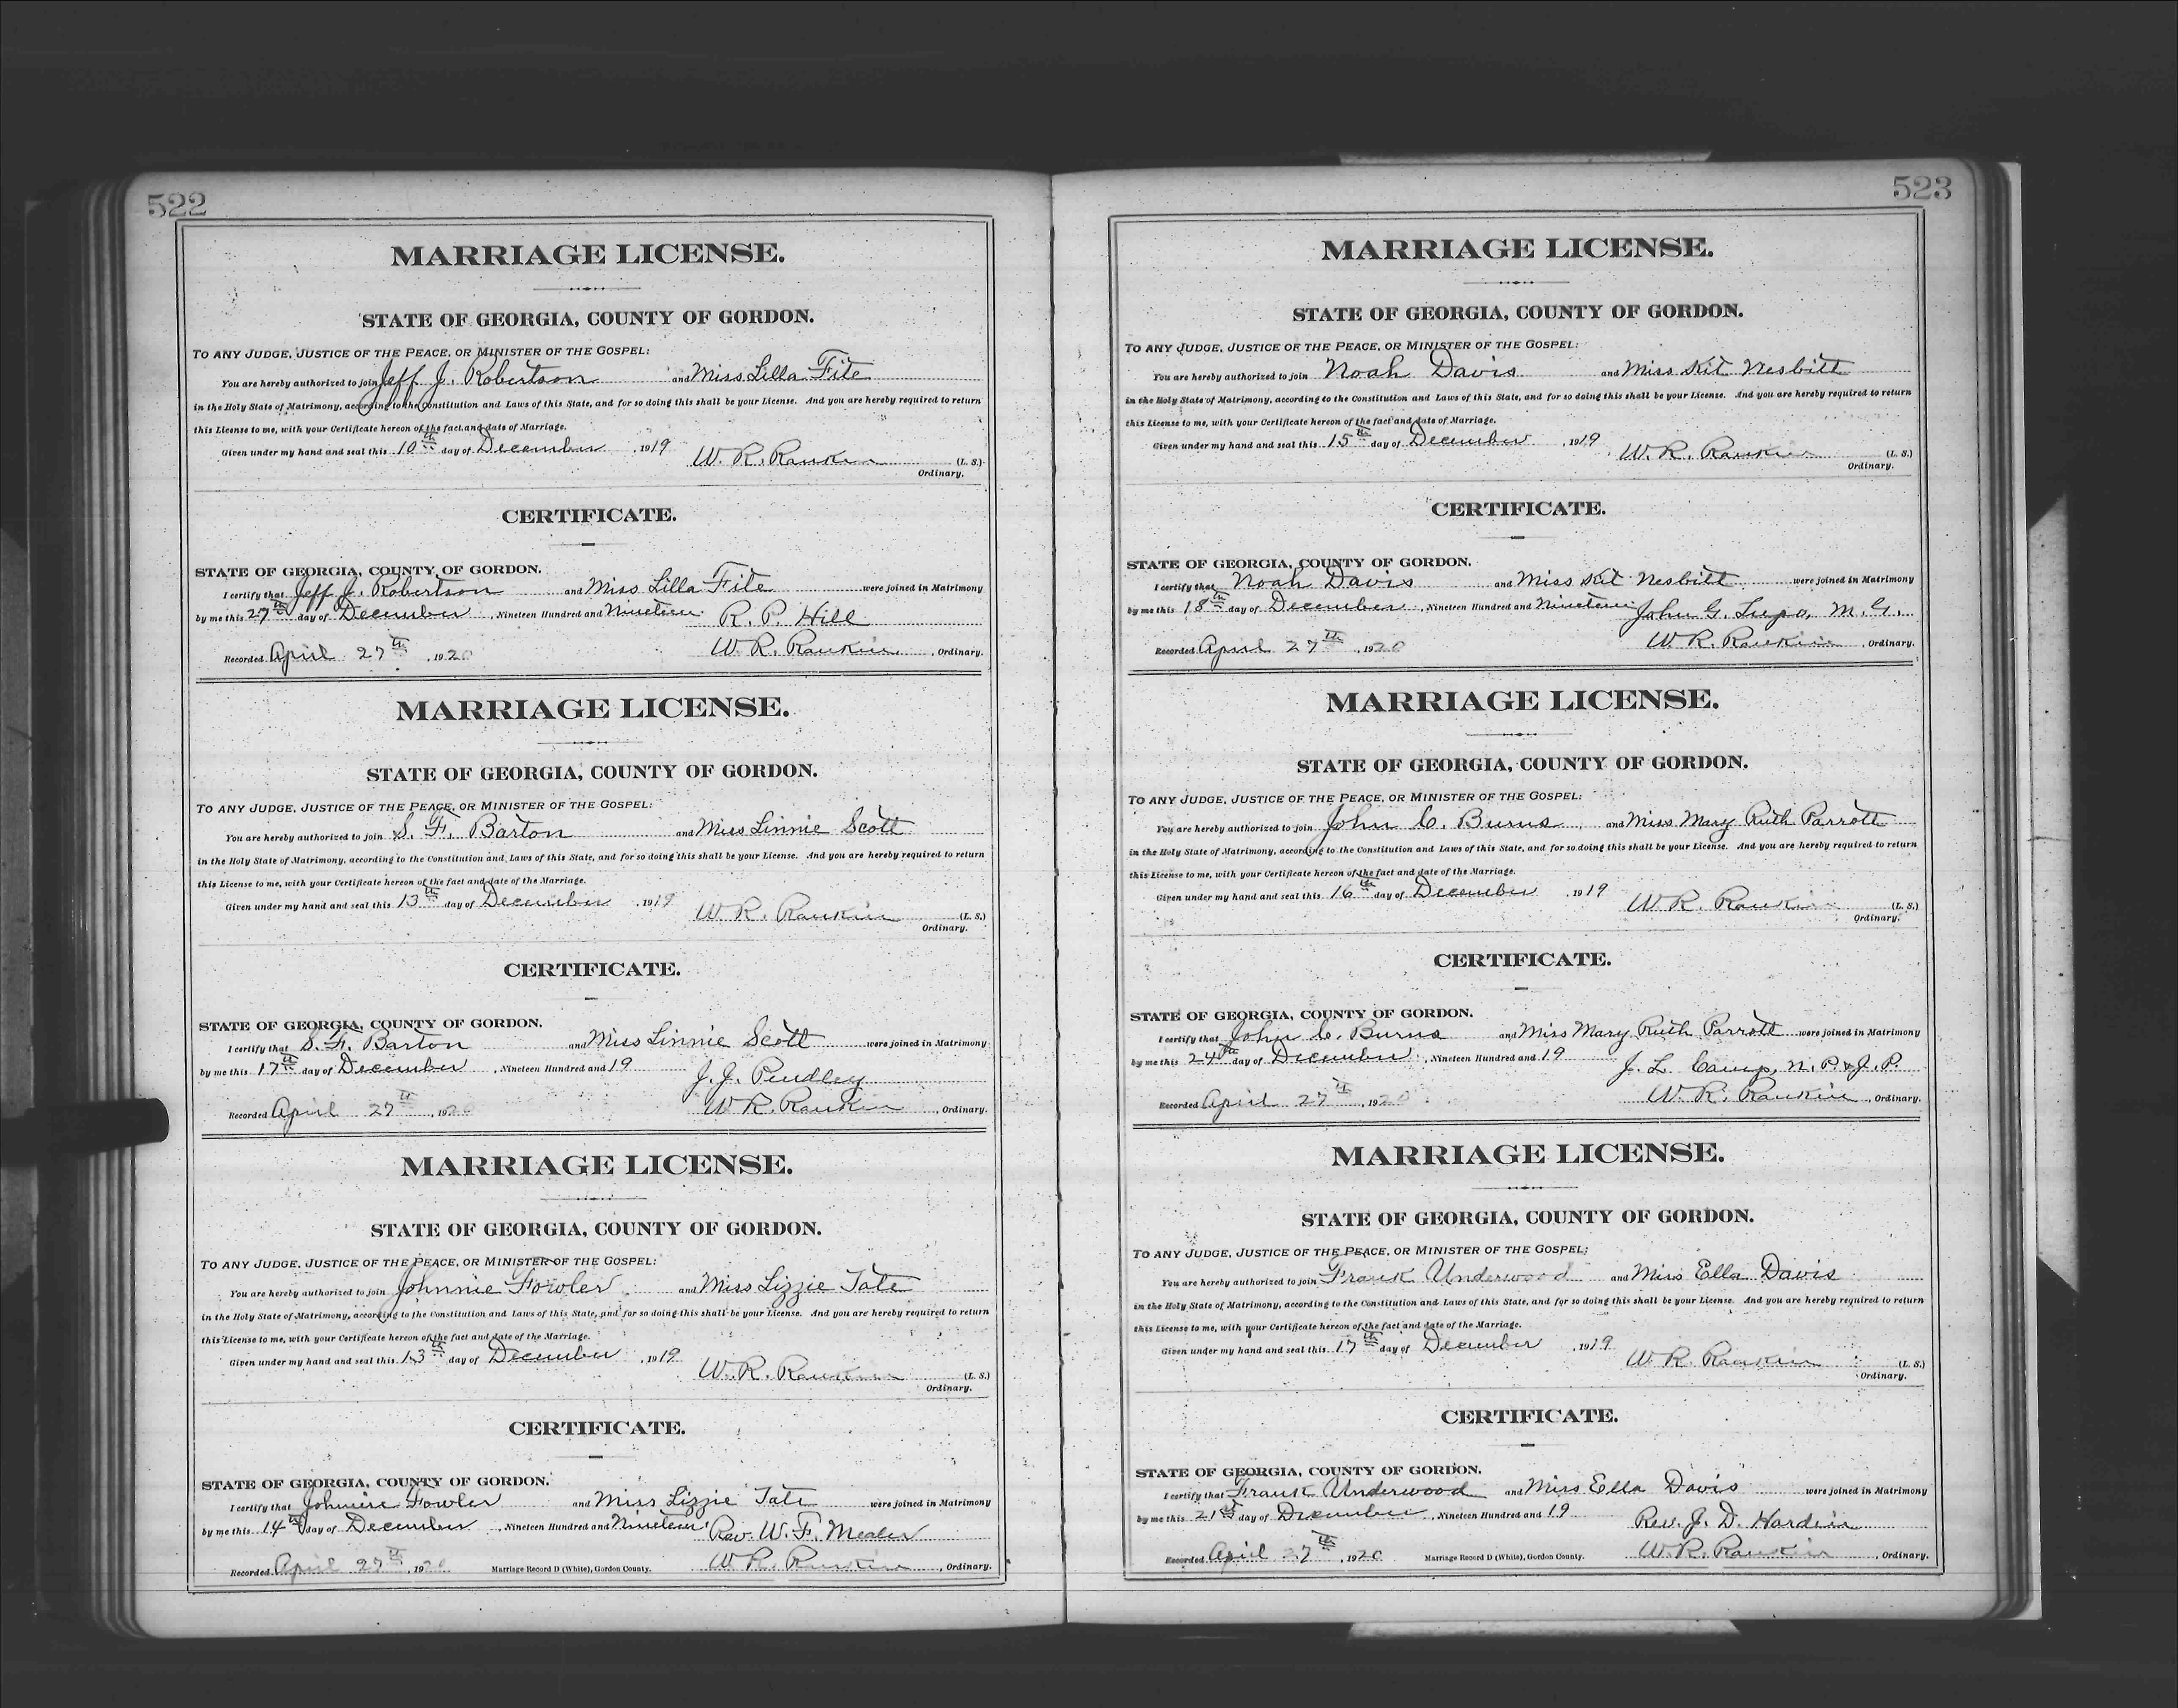 522
MARRIAGE LICENSE.
STATE OF GEORGIA, COUNTY OF GORDON.
TO ANY JUDGE, JUSTICE OF THE PEACE, OR MINISTER OF THE GOSPEL:
You are hereby authorized to join Jeff J. Robertson and Miss Lilla Fite
in the Holy State of Matrimony, according to the Constitution and Laws of this State, and for so doing this shall be your License. And you are hereby required to return
this License to me, with your Certificate hereon of the fact and date of Marriage.
Given under my hand and seal this 10th day of December, 1919 W. R. Rankin (L. S.)
Ordinary.
CERTIFICATE.
STATE OF GEORGIA, COUNTY OF GORDON.
I certify that Jeff J. Robertson and Miss Lilla Fite were joined in Matrimony
by me this 27th day of December, Nineteen Hundred and Nineteen. R. P. Hill
Recorded April 27th, 1920 W. R. Rankin, Ordinary.
MARRIAGE LICENSE.
STATE OF GEORGIA, COUNTY OF GORDON.
TO ANY JUDGE, JUSTICE OF THE PEACE, OR MINISTER OF THE GOSPEL:
You are hereby authorized to join S. F. Barton and Miss Linnie Scott
in the Holy State of Matrimony, according to the Constitution and Laws of this State, and for so doing this shall be your License. And you are hereby required to return
this License to me, with your Certificate hereon of the fact and date of the Marriage.
Given under my hand and seal this 13th day of December, 1919 W. R. Rankin (L. S.)
Ordinary.
CERTIFICATE.
STATE OF GEORGIA, COUNTY OF GORDON.
I certify that S. F. Barton and Miss Linnie Scott were joined in Matrimony
by me this 17th day of December, Nineteen Hundred and 19 J. J. Pendley
Recorded April 27th, 1920 W. R. Rankin, Ordinary.
MARRIAGE LICENSE.
STATE OF GEORGIA, COUNTY OF GORDON.
TO ANY JUDGE, JUSTICE OF THE PEACE, OR MINISTER OF THE GOSPEL:
You are hereby authorized to join Johnnie Fowler and Miss Lizzie Tate
in the Holy State of Matrimony, according to the Constitution and Laws of this State, and for so doing this shall be your License. And you are hereby required to return
this License to me, with your Certificate hereon of the fact and date of the Marriage.
Given under my hand and seal this 13th day of December, 1919 W. R. Rankin (L. S.)
Ordinary.
CERTIFICATE.
STATE OF GEORGIA, COUNTY OF GORDON.
I certify that Johnnie Fowler and Miss Lizzie Tate were joined in Matrimony
by me this 14th day of December, Nineteen Hundred and Nineteen Rev. W. F. Mealer
Recorded April 27th, 1920 Marriage Record D (White), Gordon County. W. R. Rankin, Ordinary.
523
MARRIAGE LICENSE.
STATE OF GEORGIA, COUNTY OF GORDON.
TO ANY JUDGE, JUSTICE OF THE PEACE, OR MINISTER OF THE GOSPEL:
You are hereby authorized to join Noah Davis and Miss Kit Nesbitt
in the Holy State of Matrimony, according to the Constitution and Laws of this State, and for so doing this shall be your License. And you are hereby required to return
this License to me, with your Certificate hereon of the fact and date of Marriage.
Given under my hand and seal this 15th day of December, 1919 W. R. Rankin (L. S.)
Ordinary.
CERTIFICATE.
STATE OF GEORGIA, COUNTY OF GORDON.
I certify that Noah Davis and Miss Kit Nesbitt were joined in Matrimony
by me this 18th day of December, Nineteen Hundred and Nineteen John G. Lupo, M. G.
Recorded April 27th, 1920 W. R. Rankin, Ordinary.
MARRIAGE LICENSE.
STATE OF GEORGIA, COUNTY OF GORDON.
TO ANY JUDGE, JUSTICE OF THE PEACE, OR MINISTER OF THE GOSPEL:
You are hereby authorized to join John C. Burns and Miss Mary Ruth Parrott
in the Holy State of Matrimony, according to the Constitution and Laws of this State, and for so doing this shall be your License. And you are hereby required to return
this License to me, with your Certificate hereon of the fact and date of the Marriage.
Given under my hand and seal this 16th day of December, 1919 W. R. Rankin (L. S.)
Ordinary.
CERTIFICATE.
STATE OF GEORGIA, COUNTY OF GORDON.
I certify that John C. Burns and Miss Mary Ruth Parrott were joined in Matrimony
by me this 24th day of December, Nineteen Hundred and 19 J. L. Camp, N. P. & J. P.
Recorded April 27th, 1920 W. R. Rankin, Ordinary.
MARRIAGE LICENSE.
STATE OF GEORGIA, COUNTY OF GORDON.
TO ANY JUDGE, JUSTICE OF THE PEACE, OR MINISTER OF THE GOSPEL:
You are hereby authorized to join Frank Underwood and Miss Ella Davis
in the Holy State of Matrimony, according to the Constitution and Laws of this State, and for so doing this shall be your License. And you are hereby required to return
this License to me, with your Certificate hereon of the fact and date of the Marriage.
Given under my hand and seal this 17th day of December, 1919 W. R. Rankin (L. S.)
Ordinary.
CERTIFICATE.
STATE OF GEORGIA, COUNTY OF GORDON.
I certify that Frank Underwood and Miss Ella Davis were joined in Matrimony
by me this 21st day of December, Nineteen Hundred and 19 Rev. J. D. Hardin
Recorded April 27th, 1920 Marriage Record D (White), Gordon County. W. R. Rankin, Ordinary.